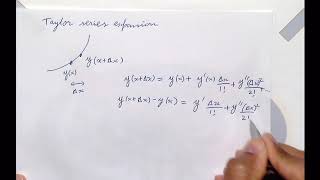 Taylor series expansion
y(x+Δx)
y(x)
Δx
y(x+Δx) = y(x) + y'(x) Δx/1! + y''(Δx)²/2!
y(x+Δx) - y(x) = y' Δx/1! + y''(Δx)²/2!